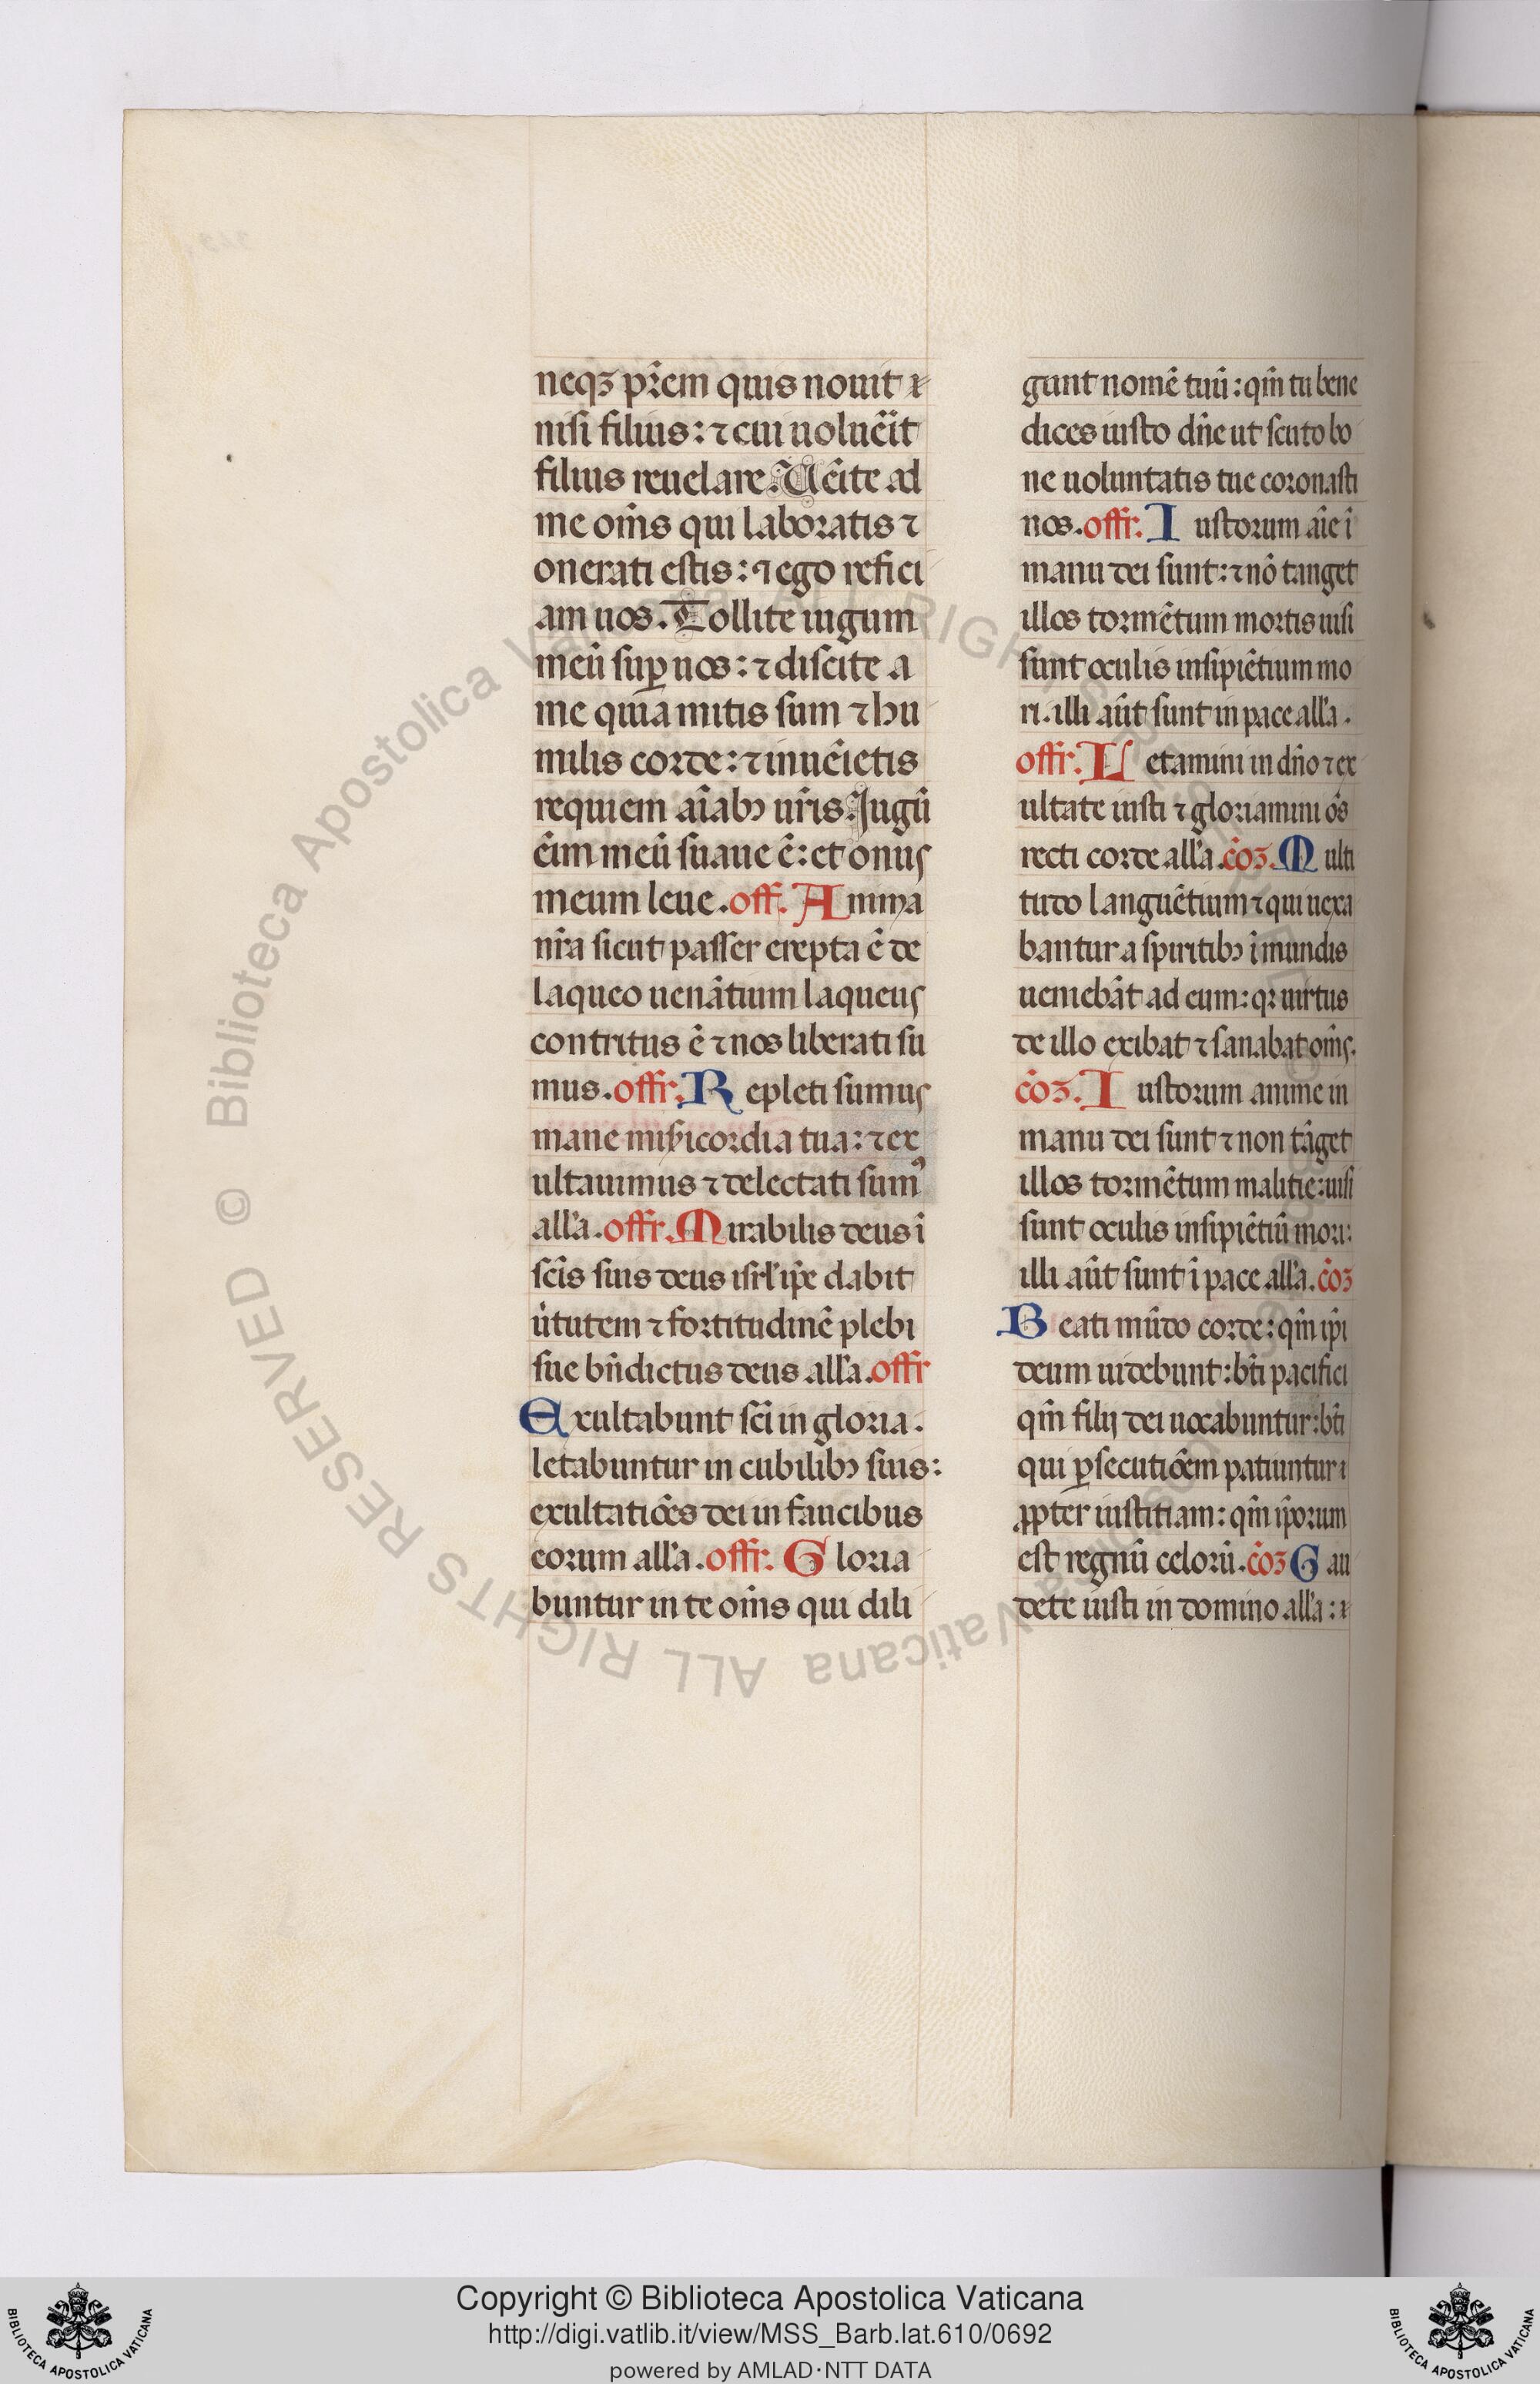 neqꝫ pr̄em quis nouit
nisi filius: ⁊ cui uoluẽit
filius reuelare. Uẽite ad
me om̄s qui laboratis ⁊
onerati estis: ⁊ ego refici
am uos. Tollite iugum
meū suꝑ uos: ⁊ discite a
me quia mitis sum ⁊ hu
milis corde: ⁊ inuēietis
requiem aīabꝫ ur̄is. Jugū
ēim meū suaue ē: et onus
meum leue. off. Anima
nr̄a sicut passer erepta ē de
laqueo uenātium laqueus
contritus ē ⁊ nos liberati su
mus. offr. Repleti sumus
mane mis̄icordia tua: ⁊ ex
ultauimus ⁊ delectati sumꝰ
all'a. offr. Mirabilis deus ī
sc̄is suis deus isrl' ip̄e dabit
ūtutem ⁊ fortitudinē plebi
sue bn̄dictus deus all'a. offr
Exultabunt sc̄i in gloria.
letabuntur in cubilibꝫ suis:
exultatiōes dei in faucibus
eorum all'a. offr. Gloria
buntur in te om̄s qui dili
gunt nomē tuū: qm̄ tu bene
dices iusto dn̄e ut scuto bo
ne uoluntatis tue coronasti
nos. offr. Iustorum aīe ī
manu dei sunt: ⁊ nō tanget
illos tormētum mortis uisi
sunt oculis insipiētium mo
ri. illi aūt sunt in pace all'a.
offr. Letamini in dn̄o ⁊ ex
ultate iusti ⁊ gloriamini ōs
recti corde all'a. cōꝫ. Multi
tudo languētium ⁊ qui uexa
bantur a spiritibꝫ īmundis
ueniebāt ad eum: qꝛ uirtus
de illo exibat ⁊ sanabat om̄s.
cōꝫ. Iustorum anime in
manu dei sunt ⁊ non tāget
illos tormētum malitie: uisi
sunt oculis insipiētiū mori:
illi aūt sunt ī pace all'a. cōꝫ
Beati mūdo corde: qm̄ ip̄i
deum uidebunt: bt̄i pacifici
qm̄ filij dei uocabuntur: bt̄i
qui ꝑsecutiōem patiuntur
ꝓpter iustitiam: qm̄ ip̄orum
est regnū celorū. cōꝫ Gau
dete iusti in domino all'a:
Copyright © Biblioteca Apostolica Vaticana
http://digi.vatlib.it/view/MSS_Barb.lat.610/0692
powered by AMLAD·NTT DATA
BIBLIOTECA APOSTOLICA VATICANA
BIBLIOTECA APOSTOLICA VATICANA
© Biblioteca Apostolica Vaticana ALL RIGHTS RESERVED